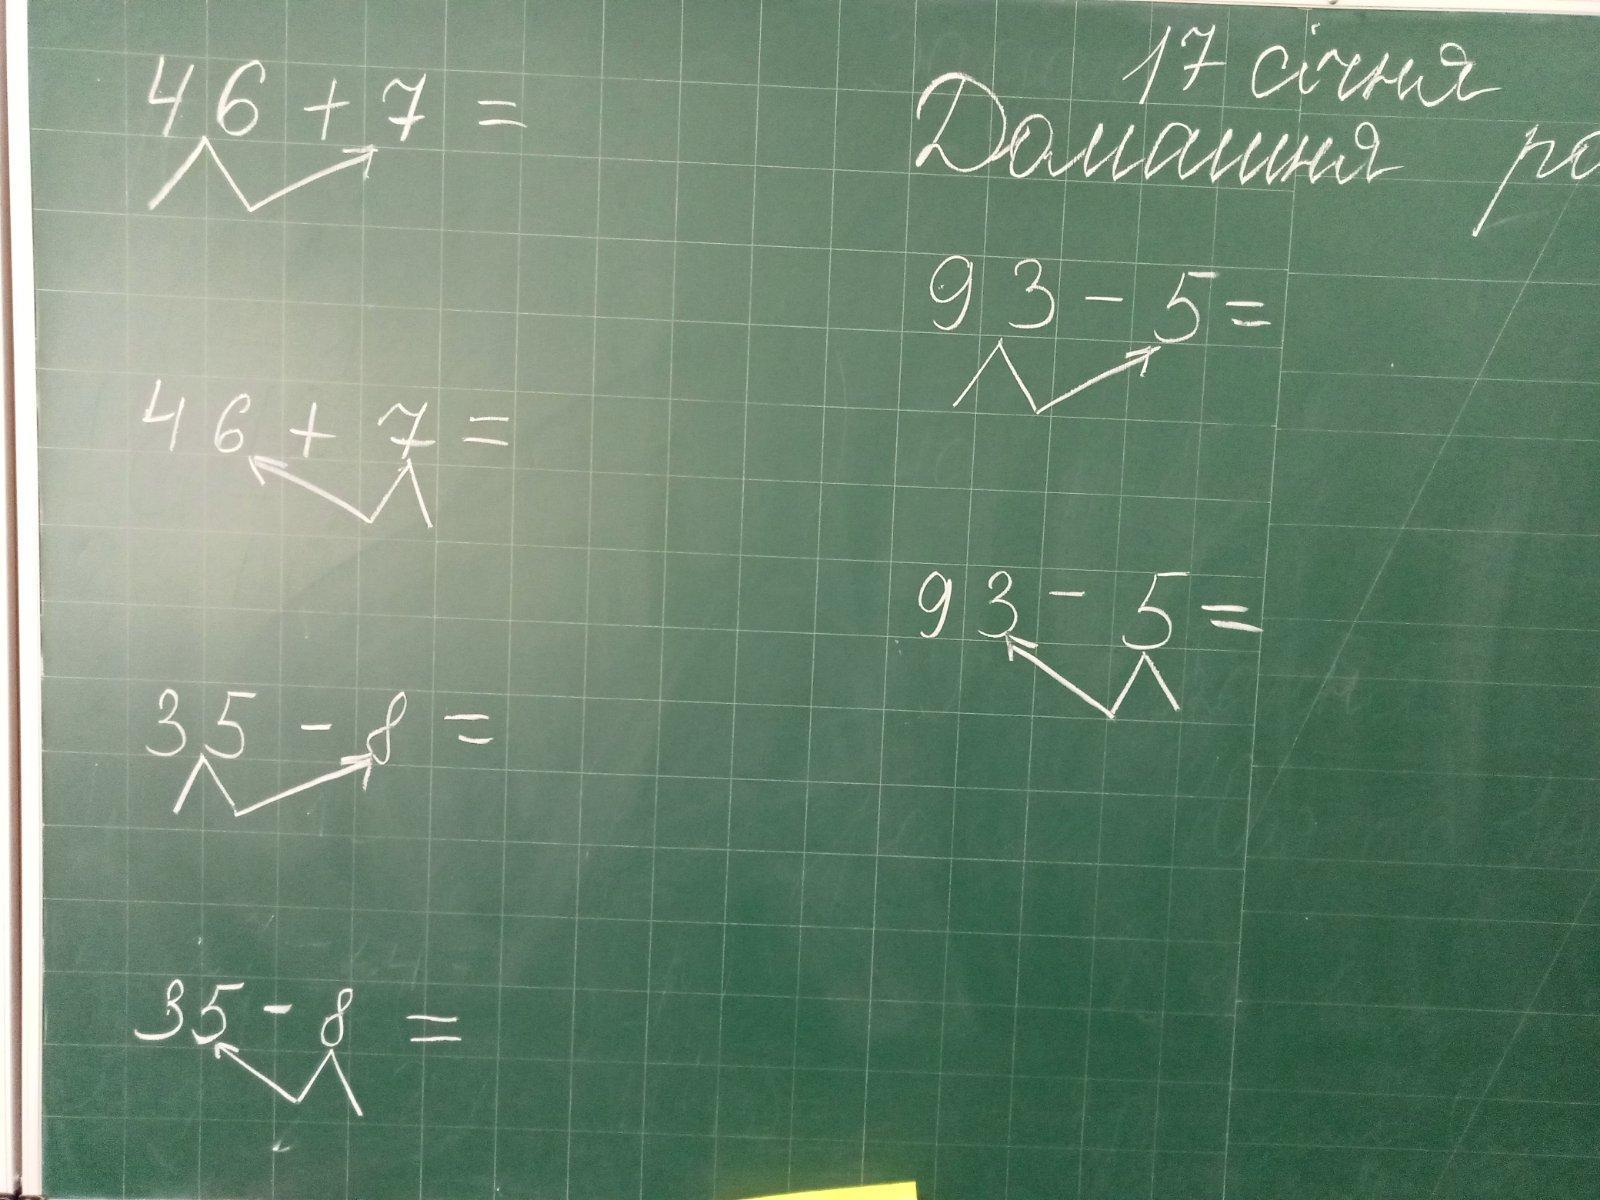 46 + 7 =
46 + 7 =
35 - 8 =
35 - 8 =
17 січня
Домашня
93 - 5 =
93 - 5 =